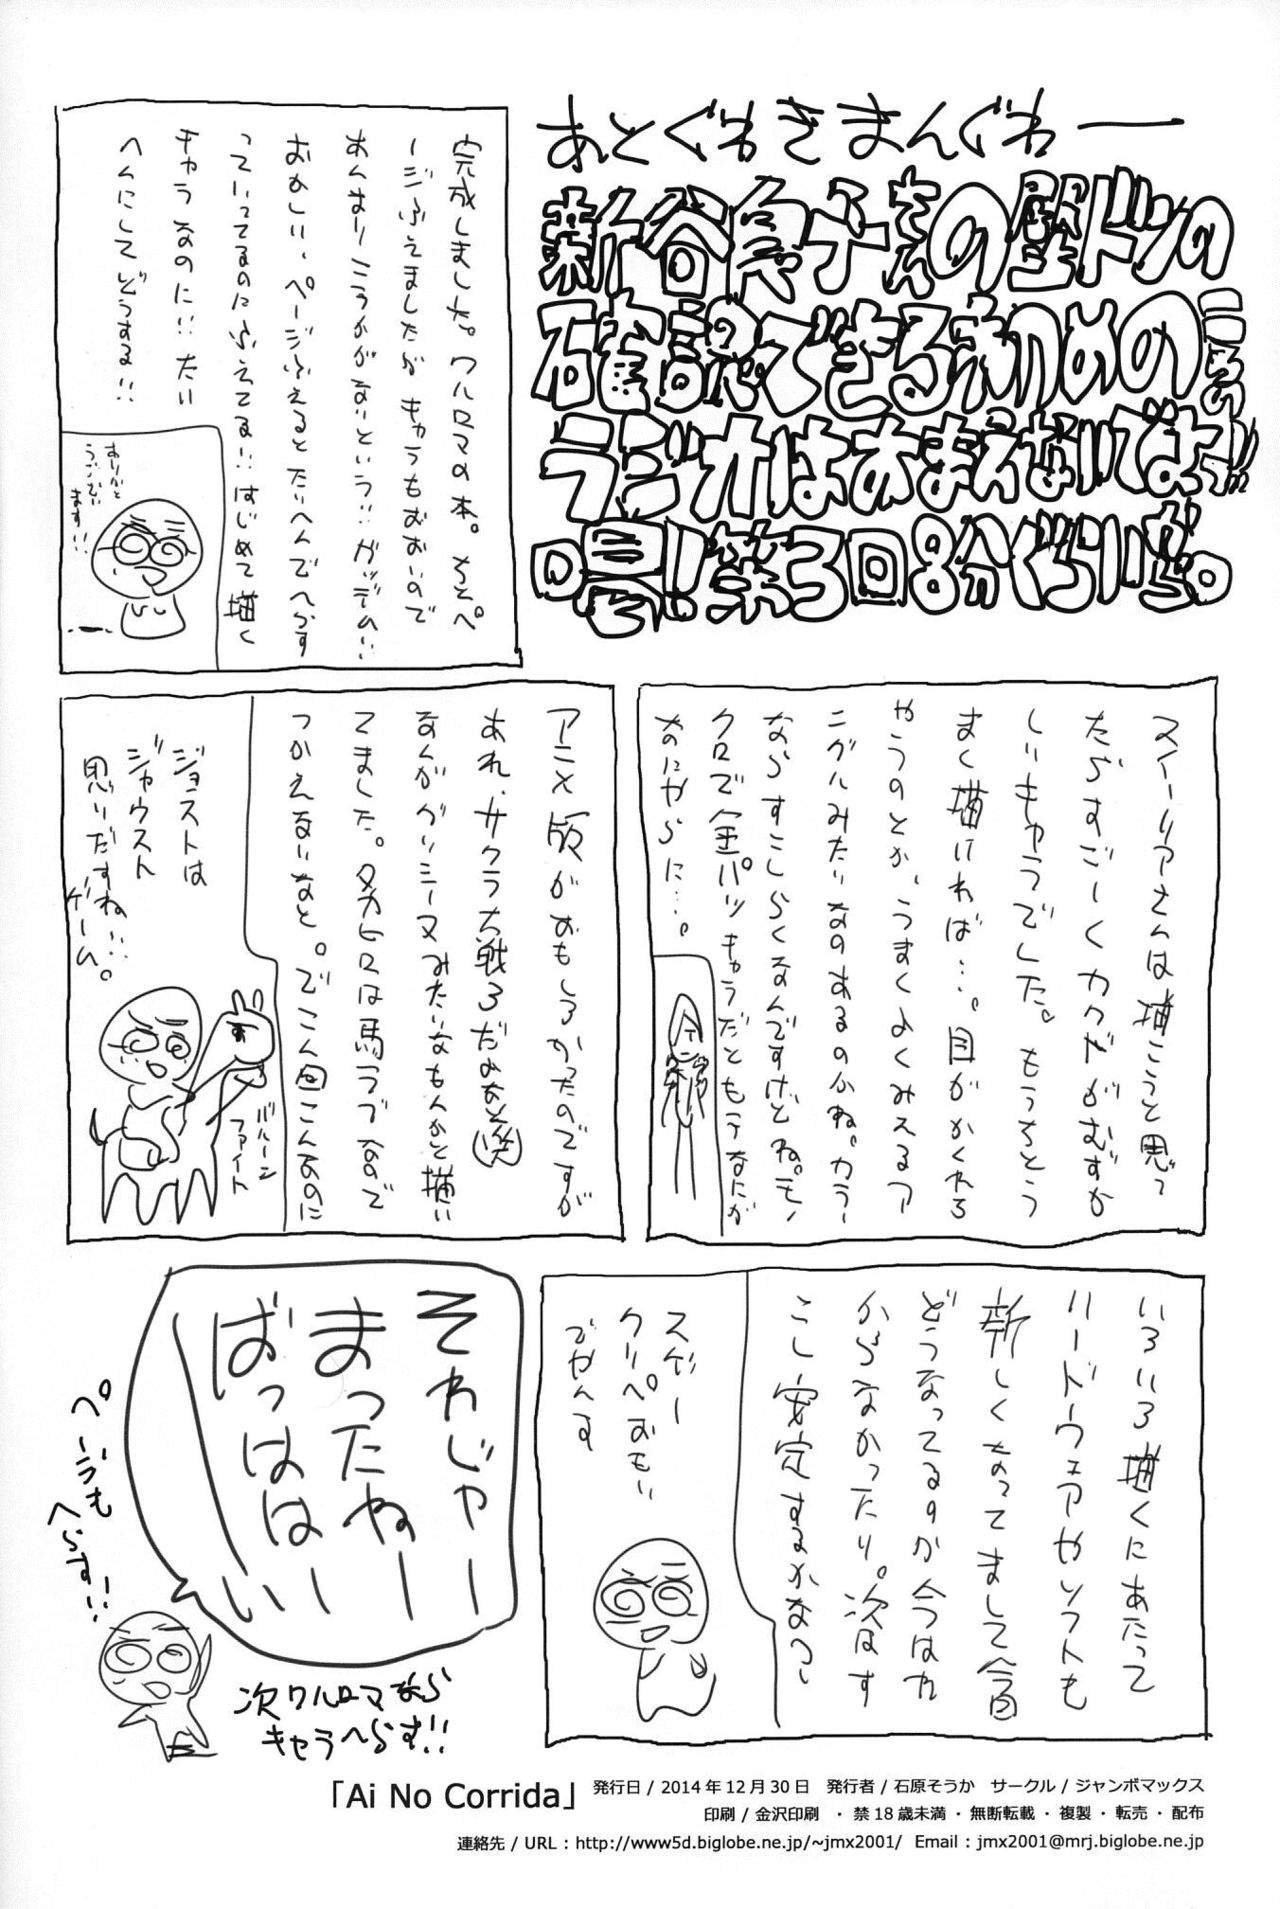 あとぐわきまんぐわー
新谷良子さんの壁ドンの
確認できる初めての
ラジオはあまえないでよっ!!
喝!!第3回8分ぐらい
完成しました。ワルロマの本。ちとペ
ージふえましたがキャラもおおいので
あんまりこうかがないという!!ガッデム!!
おかしい、ページふえるとたいへんでへらす
っていってるのにふえてる!!はじめて描く
キャラなのに!!たい
へんにしてどうする!!
ありがと
うござい
ます!!
スイーリアさんは描こうと思っ
たらすごーくカクがむずか
しいキャラでした。もうちとう
まく描ければ…。目がかくれる
やうのとか、うまくよくみえるア
ングルみたいなのあるのかね。カラー
ならすこしらくなんですけどね。モノ
クロで金パツキャラだともうなにが
なにやらに…。
アニメ版がおもしろかったのですが
あれ、サクラ大戦3だよなと(笑)
なんがグリシーヌみたいなもんかと描い
てました。タカヒロは馬ラブなので
つかえないなと。でこん回こんなのに
ジョストは
ジャウスト
思いだすね…
ゲーム。
バルーン
ファイト
いろいろ描くにあたって
ハードウェアやソフトも
新しくなってまして今回
どうなってるのか今はわ
からなかったり。次はす
こし安定するかなっ
スゲー
クリペおもい
でやんす
それじゃー
まったねー
ばっははーい
ページも
へらす!!
次ワルロマなら
キャラへらす!!
「Ai No Corrida」 発行日 / 2014年12月30日 発行者 / 石原そうか サークル / ジャンボマックス
印刷 / 金沢印刷 ・禁18歳未満・無断転載・複製・転売・配布
連絡先 / URL : http://www5d.biglobe.ne.jp/~jmx2001/ Email : jmx2001@mrj.biglobe.ne.jp